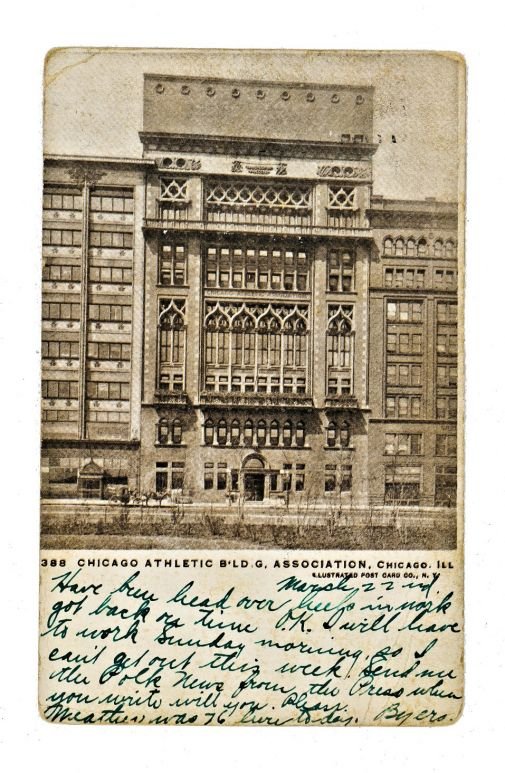 388 CHICAGO ATHLETIC B'LD.G, ASSOCIATION, CHICAGO. ILL
ILLUSTRATED POST CARD CO., N. Y.
March 22nd.
Have been head over heels in work
got back on time O.K. I will have
to work Sunday morning, so I
can't get out this week. Send me
the Polk News from the Press when
you write will you. Please.
Weather was 76 here today. Byers.